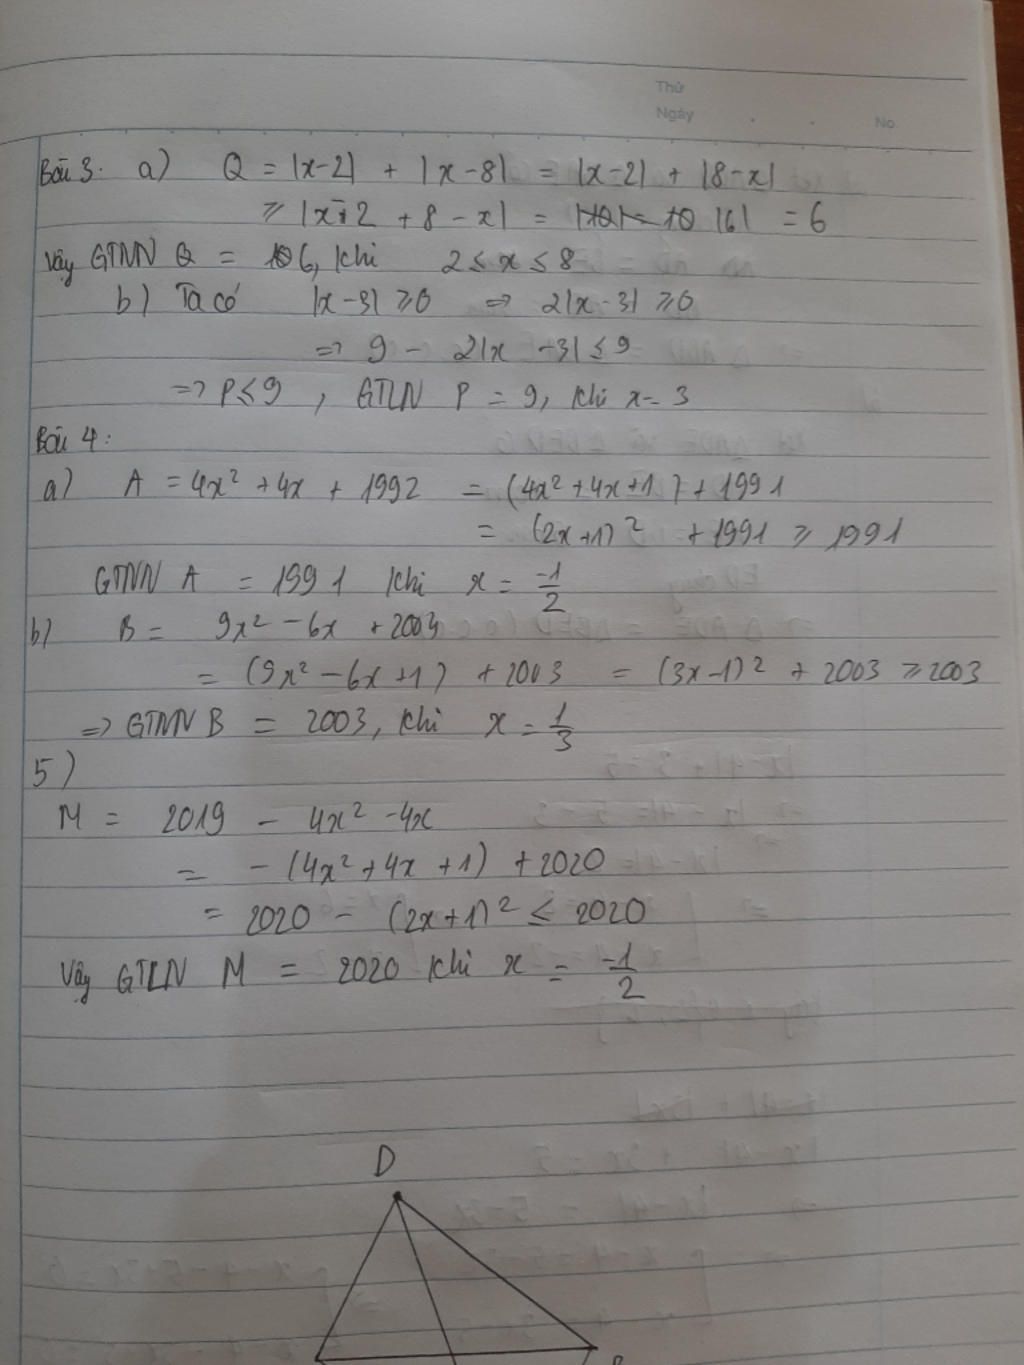 Thứ
Ngày . . No
Bài 3. a) Q = |x-2| + |x-8| = |x-2| + |8-x|
≥ |x-2 + 8-x| = |10| = 10 |6| = 6
Vậy GTNN Q = 6, khi 2 ≤ x ≤ 8
b) Ta có |x-3| ≥ 0 => 2|x-3| ≥ 0
=> 9 - 2|x-3| ≤ 9
=> P ≤ 9, GTLN P = 9, khi x = 3
Bài 4:
a) A = 4x² + 4x + 1992 = (4x² + 4x + 1) + 1991
= (2x+1)² + 1991 ≥ 1991
GTNN A = 1991 khi x = -1/2
b) B = 9x² - 6x + 2004
= (9x² - 6x + 1) + 2003 = (3x-1)² + 2003 ≥ 2003
=> GTNN B = 2003, khi x = 1/3
5)
M = 2019 - 4x² - 4x
= - (4x² + 4x + 1) + 2020
= 2020 - (2x+1)² ≤ 2020
Vậy GTLN M = 2020 khi x = -1/2
D